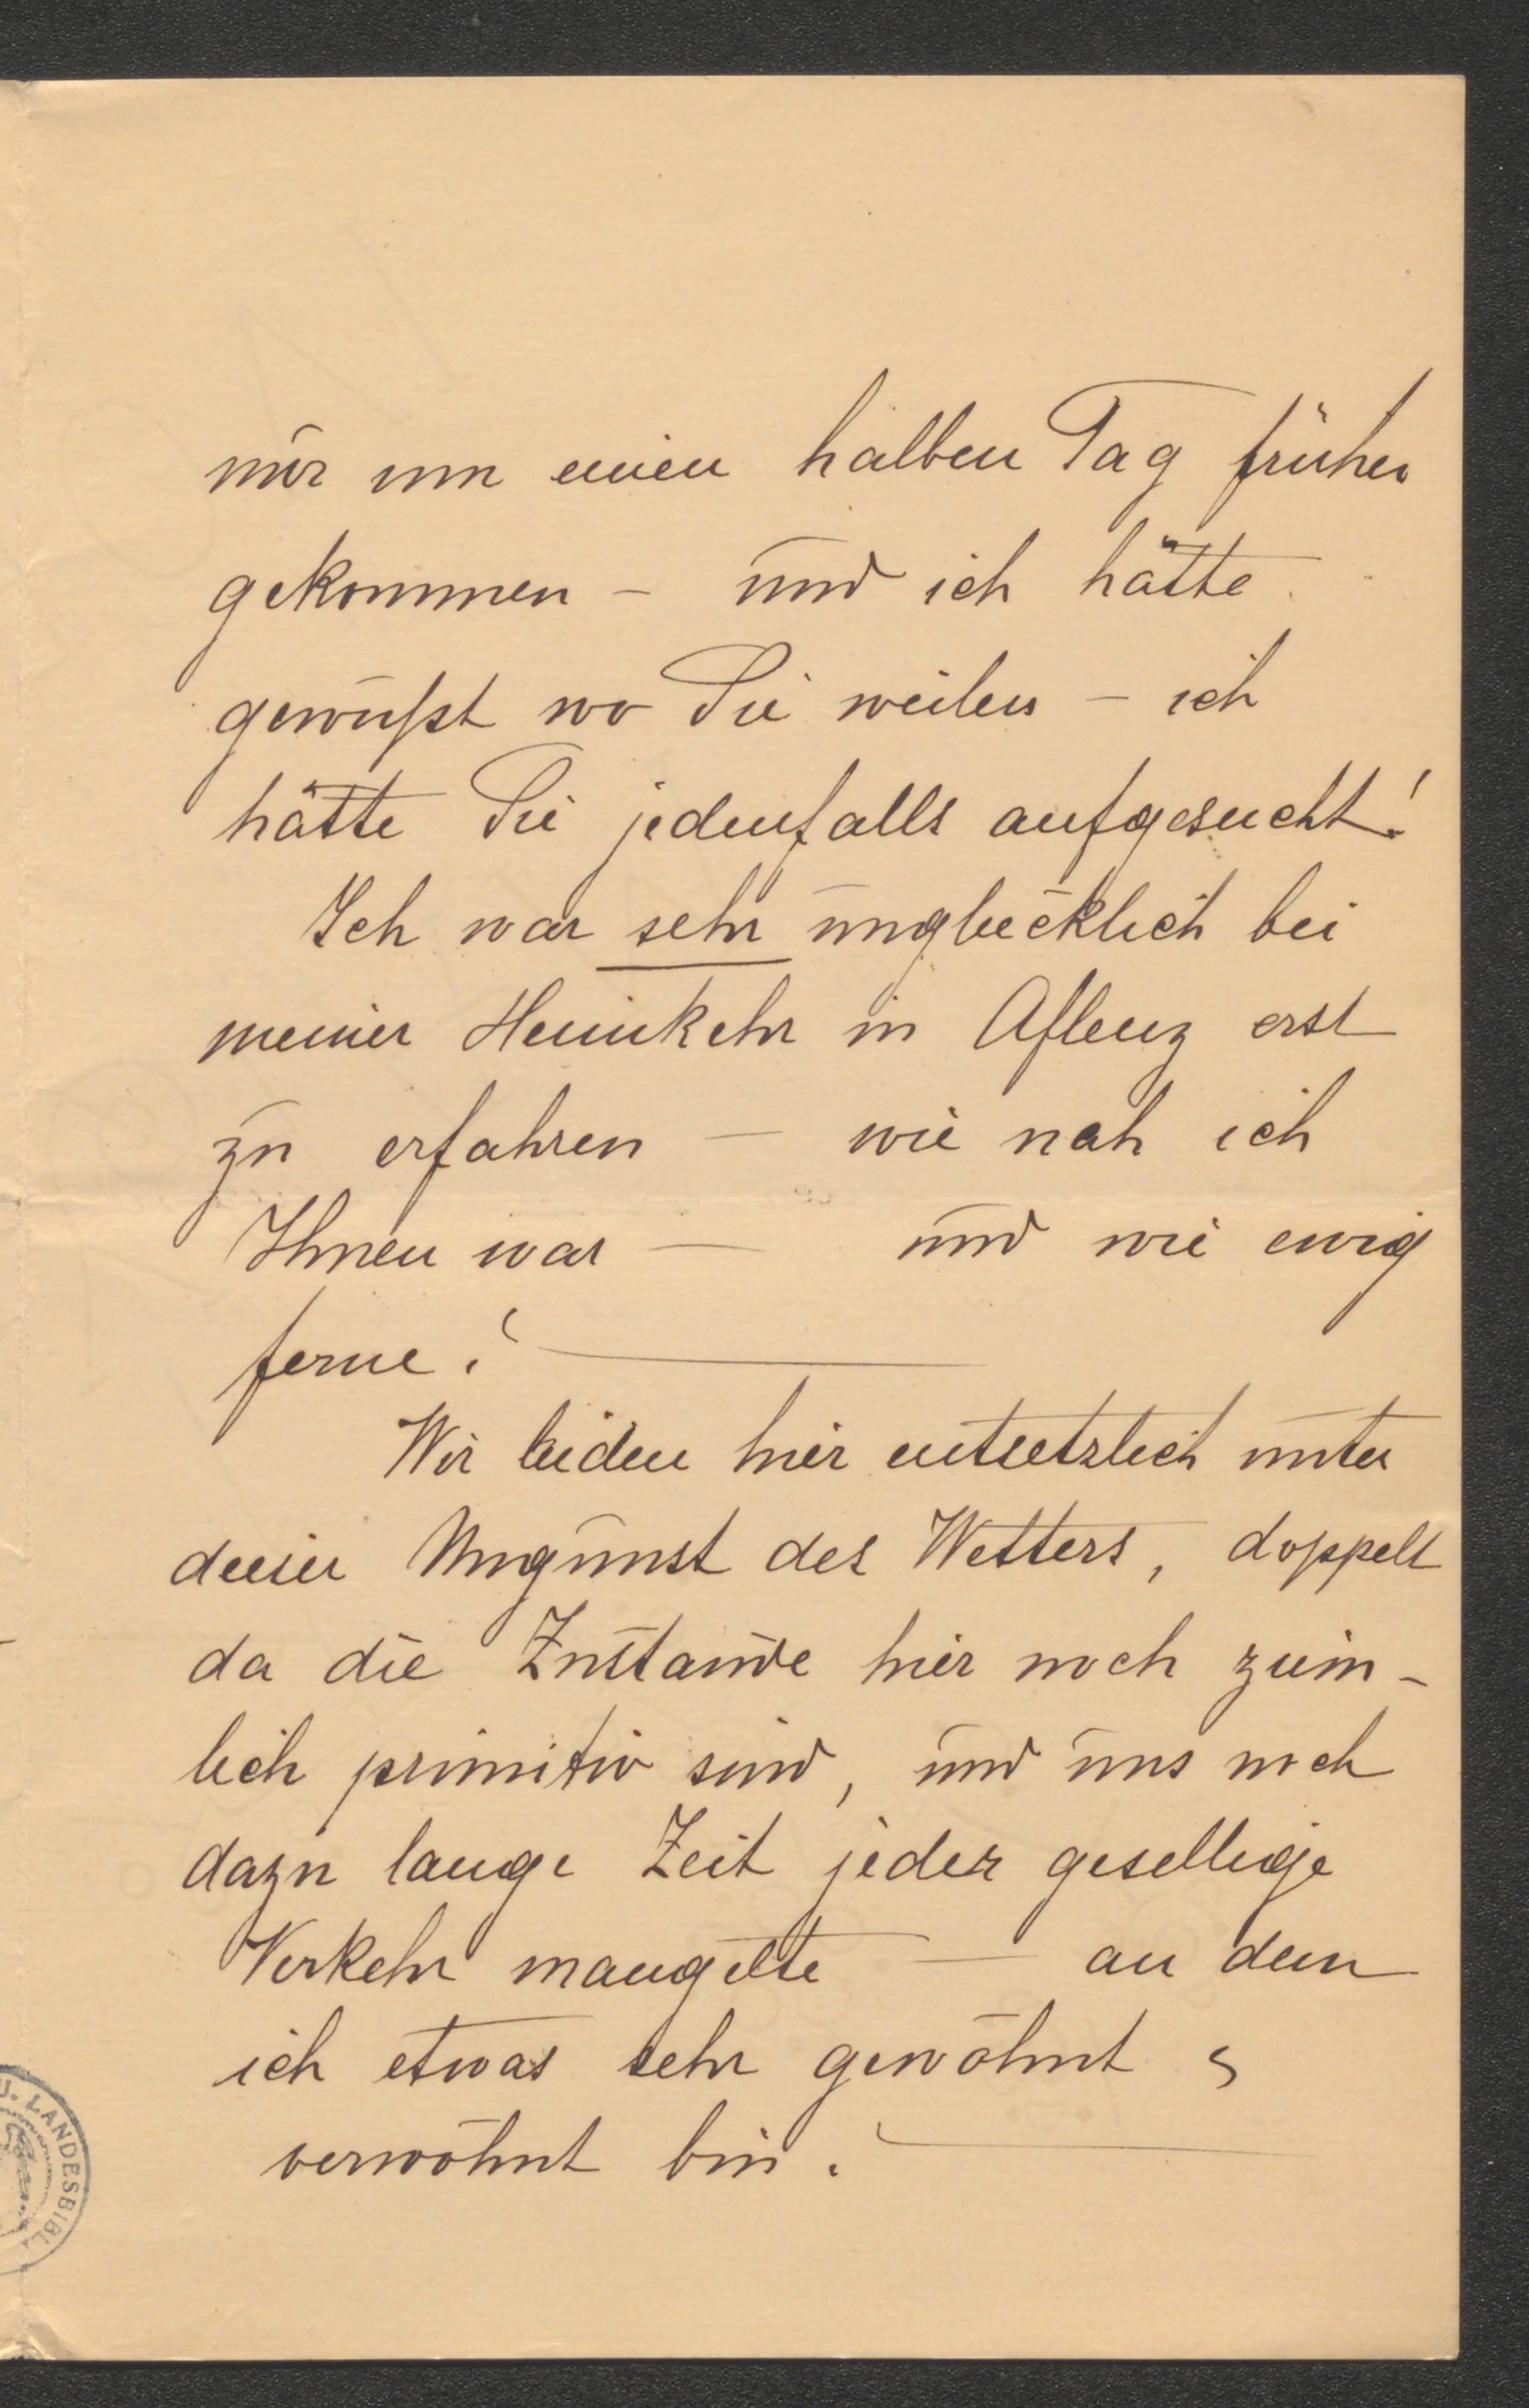 mir um einen halben Tag früher
gekommen – und ich hätte
gewußt wo Sie weilen – ich
hätte Sie jedenfalls aufgesucht!
Ich war sehr unglücklich bei
meiner Heimkehr in Aflenz erst
zu erfahren – wie nah ich
Ihnen war – und wie ewig
ferne! —
Wir leiden hier entsetzlich unter
dieser Ungunst des Wetters, doppelt
da die Zustände hier noch ziem-
lich primitiv sind, und uns noch
dazu lange Zeit jeder gesellige
Verkehr mangelte – an dem
ich etwas sehr gewöhnt &
verwöhnt bin. —
U. LANDESBIBL.